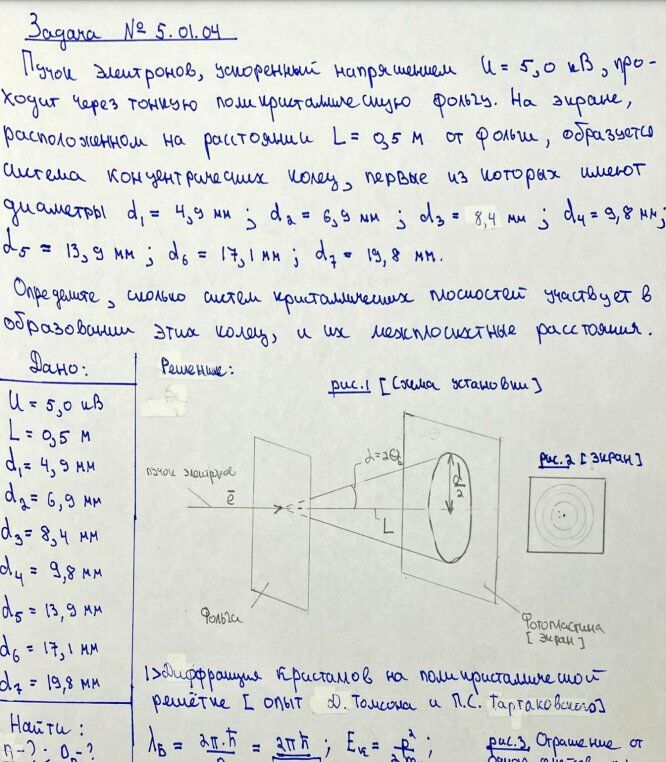 Задача № 5.01.04
Пучок электронов, ускоренный напряжением U = 5,0 кВ, про-
ходит через тонкую поликристаллическую фольгу. На экране,
расположенном на расстоянии L = 0,5 м от фольги, образуется
система концентрических колец, первые из которых имеют
диаметры d₁ = 4,9 мм ; d₂ = 6,9 мм ; d₃ = 8,4 мм ; d₄ = 9,8 мм;
d₅ = 13,9 мм ; d₆ = 17,1 мм ; d₇ = 19,8 мм.
Определите, сколько систем кристаллических плоскостей участвует в
образовании этих колец, и их межплоскостные расстояния.
Дано:
U = 5,0 кВ
L = 0,5 м
d₁ = 4,9 мм
d₂ = 6,9 мм
d₃ = 8,4 мм
d₄ = 9,8 мм
d₅ = 13,9 мм
d₆ = 17,1 мм
d₇ = 19,8 мм
Найти:
n-? ;
Решение:
рис.1 [Схема установки]
пучок электронов
ē
α=2θ
d/2
L
Фольга
Фотопластина
[экран]
рис.2 [экран]
1>Диффракция кристалов на поликристаллической
решётке [опыт Д. Томсона и П.С. Тартаковского]
λБ = 2π·ħ = 2πħ ; Eк = p² ;
рис.3 Отражение от